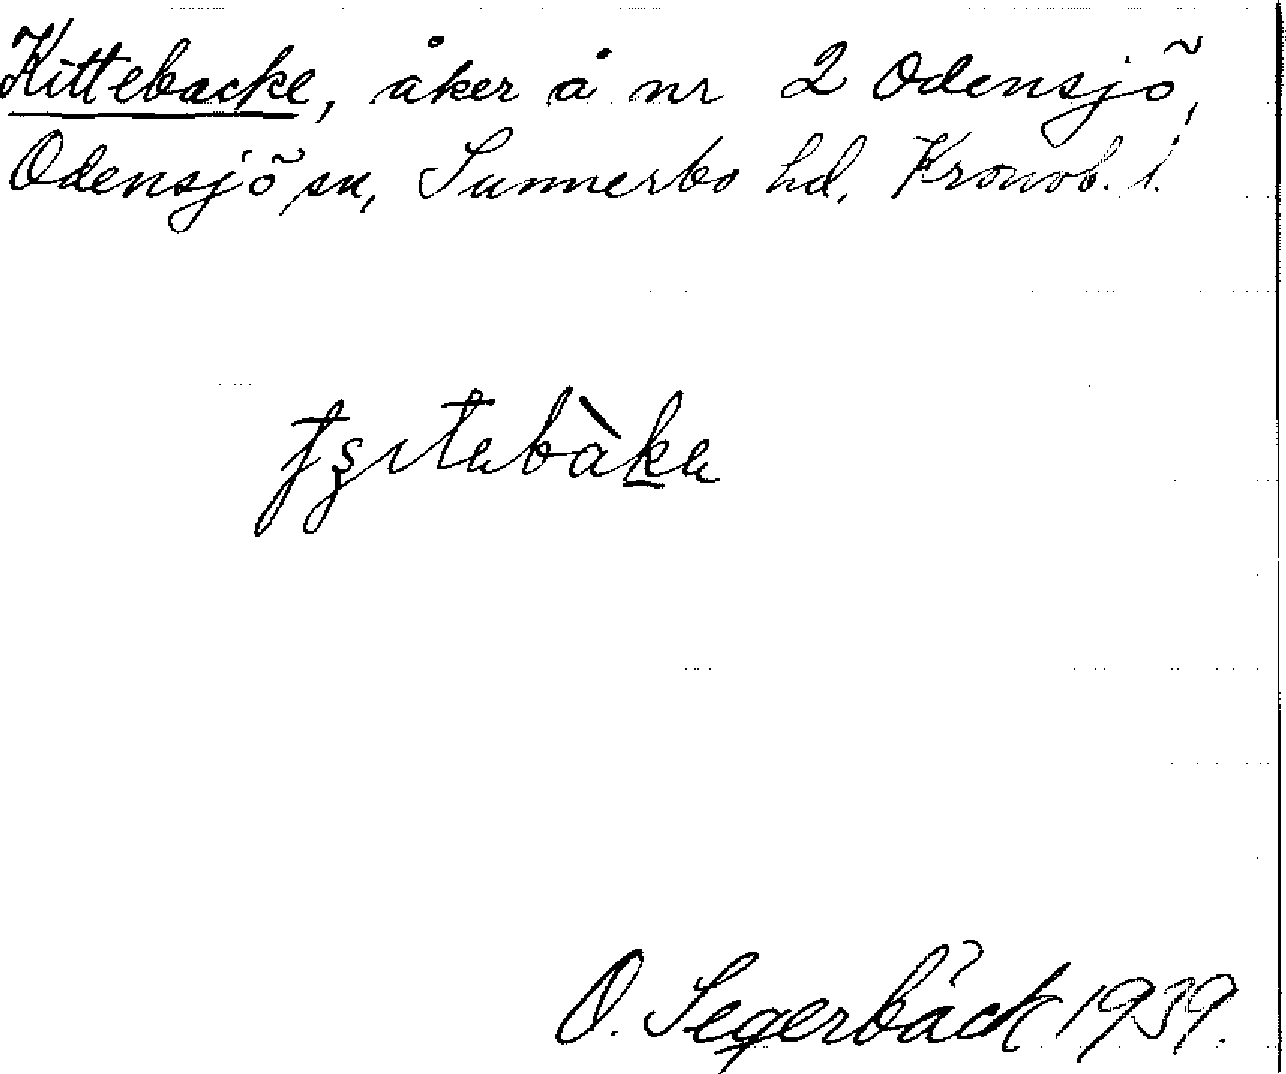 Kittebacke, åker å nr 2 Odensjö,
Odensjö sn, Sunnerbo hd, Kronob. l.
O. Segerbäck 1939.